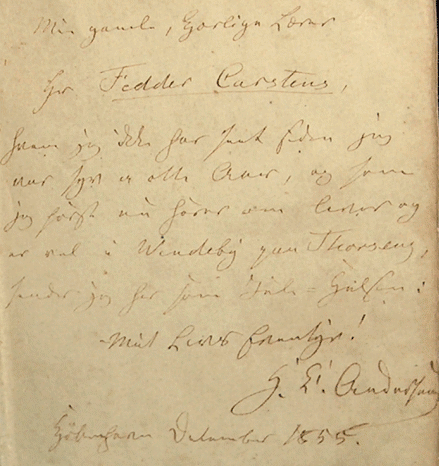 Min gamle, hjertelige Lærer
Hr Fedder Carstens,
hvem jeg ikke har seet siden jeg
var syv a otte Aar, og som
jeg først nu hører om lever og
er vel i Windeby paa Thorseng,
sender jeg her som Jule=Hilsen:
Mit Livs Eventyr!
H. C. Andersen
Kjöbenhavn December 1855.